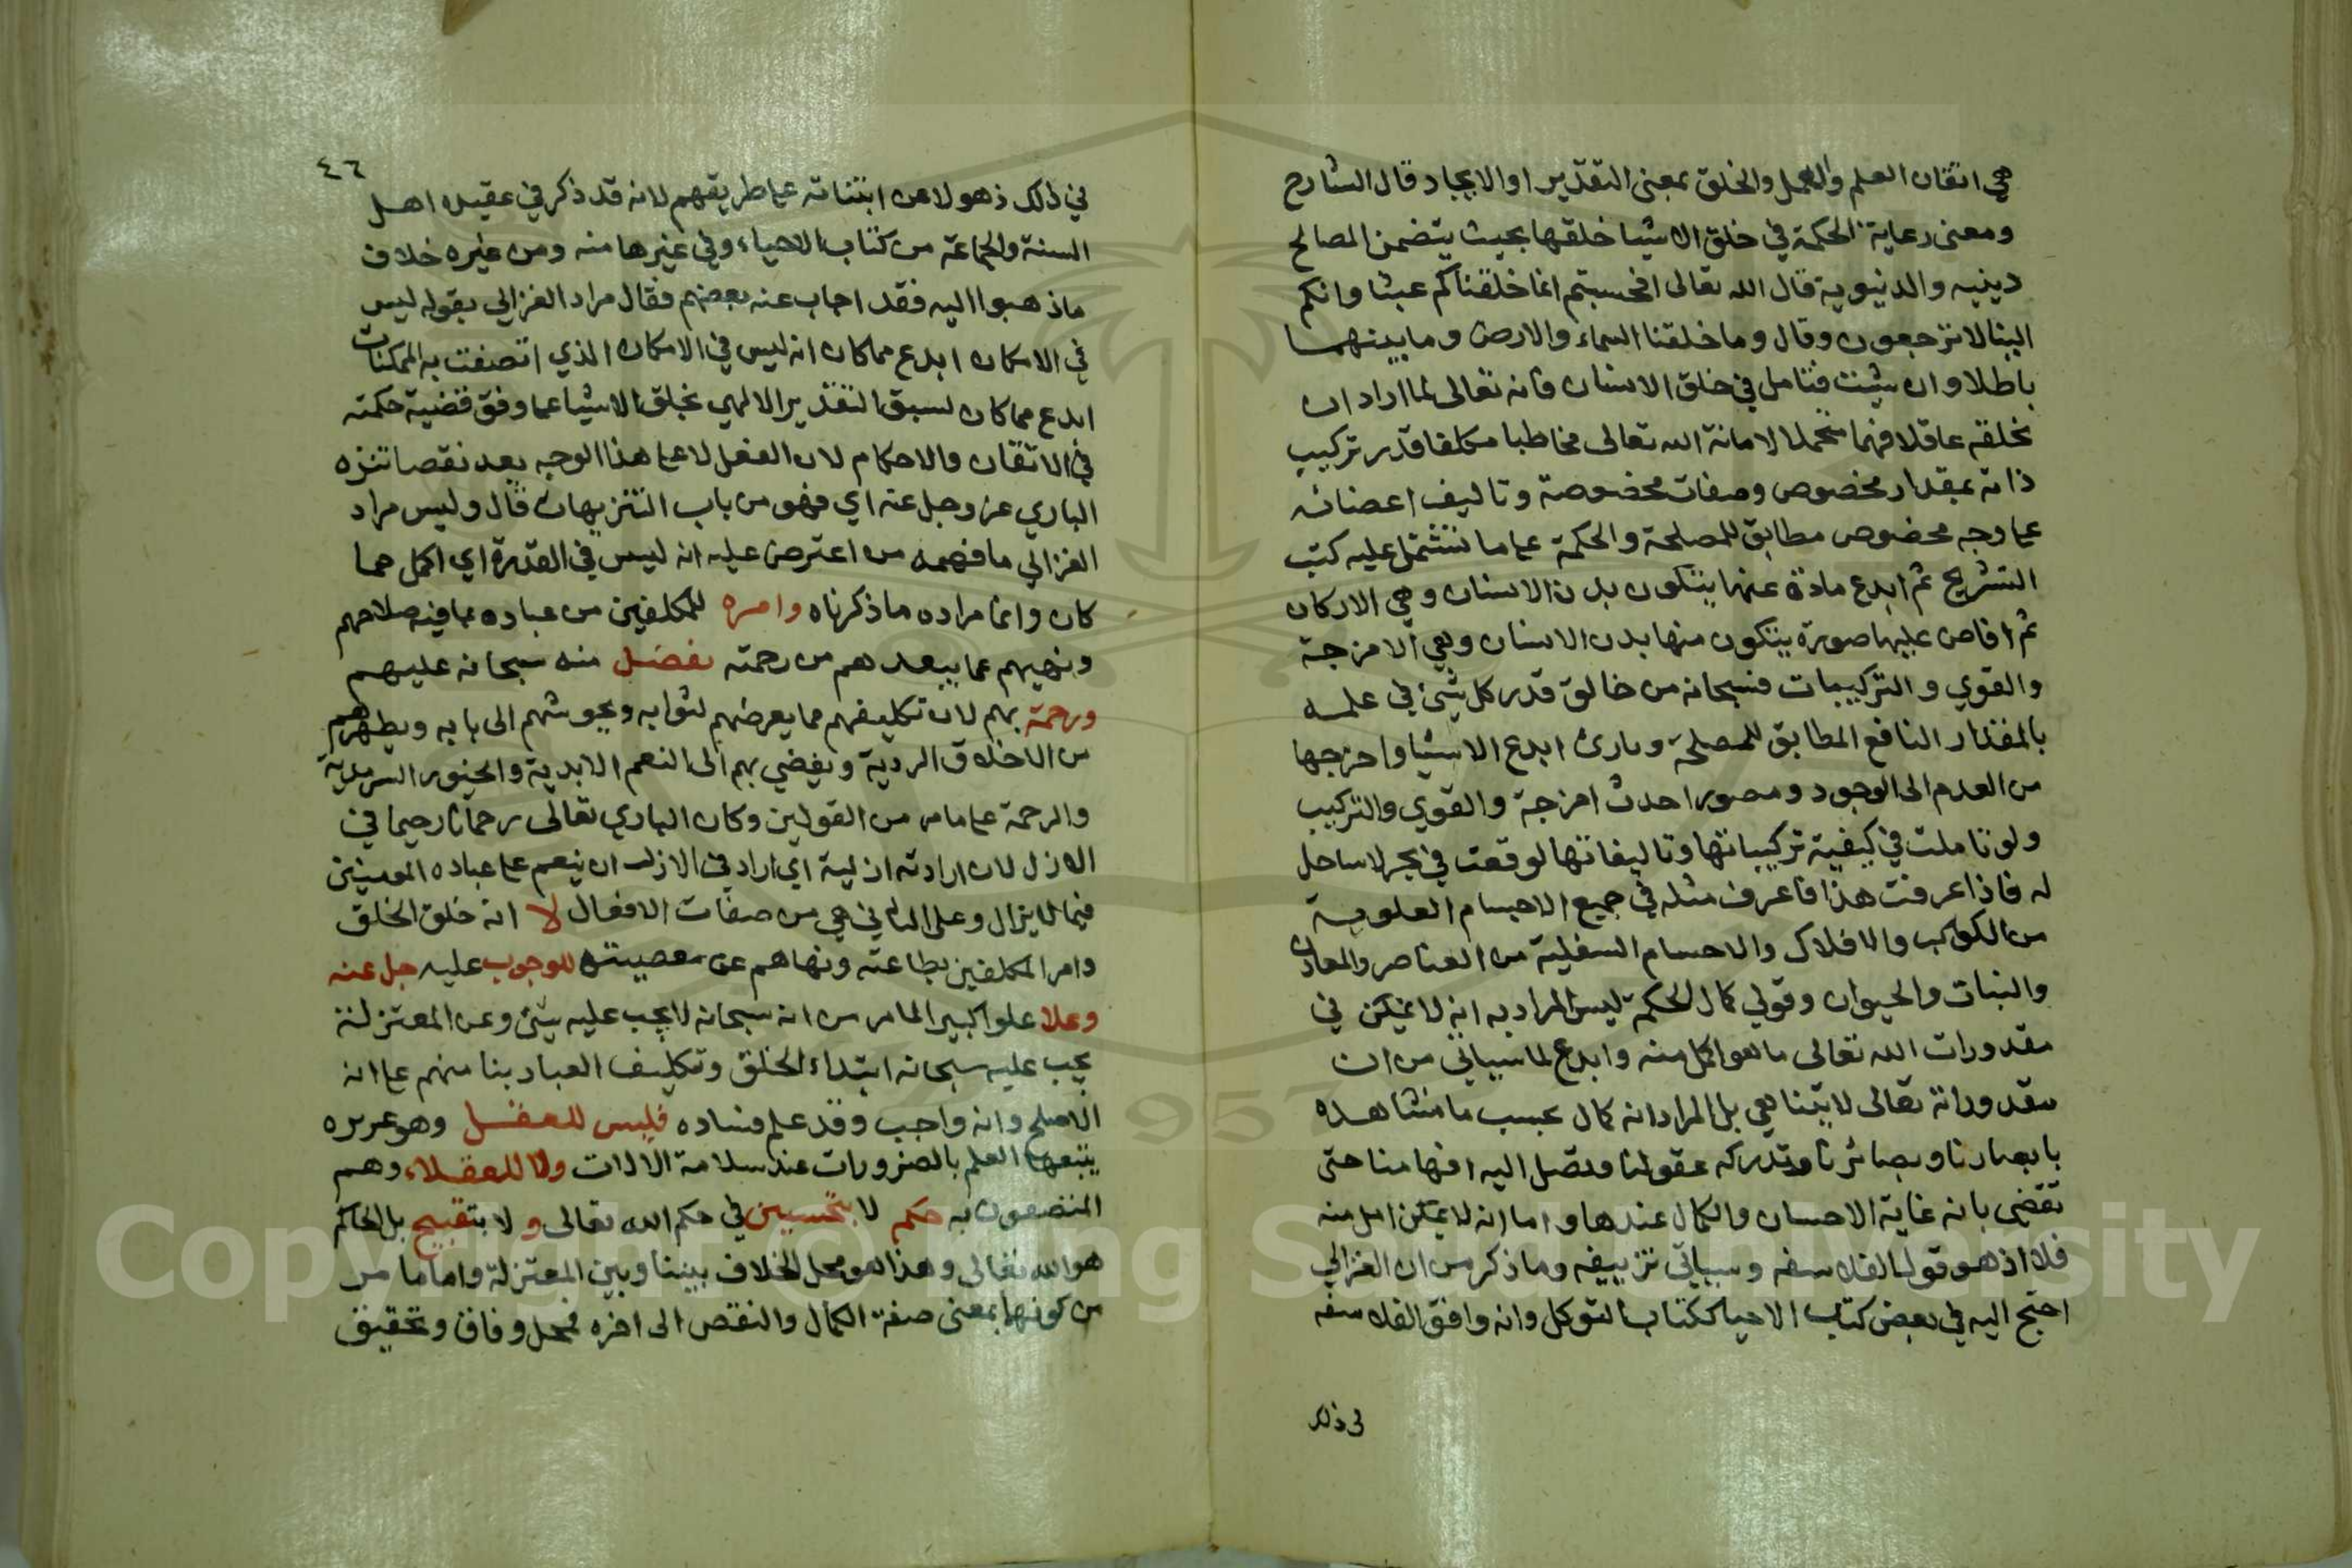 هي اتقان العلم والعمل والخلق بمعنى التقدير او الايجاد قال الشارح
ومعنى رعاية الحكمة في خلق الاشيا خلقها بحيث يتضمن المصالح
دينيه والدنيوية قال الله تعالى افحسبتم انما خلقناكم عبثا وانكم
الينا لا ترجعون وقال وما خلقنا السماء والارض وما بينهما
باطلا وان شئت فتامل في خلق الانسان فانه تعالى لما اراد ان
يخلقه عاقلا فهما متحملا لامانة الله تعالى مخاطبا مكلفا قدر تركيب
ذاته بمقدار مخصوص وصفات مخصوصة وتاليف اعضائه
على وجه مخصوص مطابق للمصلحة والحكمة على ما تشتمل عليه كتب
التشريح ثم ابدع مادة عنها يتكون بدن الانسان وهي الاركان
ثم افاض عليها صورة يتكون منها بدن الانسان وهي الامزجة
والقوي والتركيبات فسبحانه من خالق قدر كل شئ في علمه
بالمقدار النافع المطابق للمصلحة وبارئ ابدع الاشيا واخرجها
من العدم الى الوجود ومصور احدث امزجة والقوي والتركيب
ولو تاملت في كيفية تركيباتها وتاليفاتها لوقعت في بحر لا ساحل
له فاذا عرفت هذا فاعرف مثله في جميع الاجسام العلوية
من الكواكب والافلاك والاجسام السفلية من العناصر والمعادن
والنبات والحيوان وقولي كمال الحكمة ليس المراد به انه لا يمكن في
مقدورات الله تعالى ما هو اكمل منه وابدع لما سياتي من ان
مقدوراته تعالى لا يتناهي بل المراد انه كمال بحسب ما نشاهده
بابصارنا وبصائرنا وتدركه عقولنا وتصل اليه افهامنا حتى
تقضي بانه غاية الاحسان والكمال عندها واما انه لا يمكن اكمل منه
فلا اذ هو قول الفلاسفه وسياتي تزييفه وما ذكر من ان الغزالي
احتج اليه في بعض كتب الاحيا ككتاب التوكل وانه وافق الفلاسفه
في ذلك
٤٦
في ذلك ذهولا عن ابتنائه على طريقهم لانه قد ذكر في عقيده اهل
السنة والجماعة من كتاب الاحياء وفي غيرها منه ومن غيره خلاف
ما ذهبوا اليه فقد اجاب عنه بعضهم فقال مراد الغزالي بقوله ليس
في الامكان ابدع مما كان انه ليس في الامكان الذي اتصفت به الممكنات
ابدع مما كان لسبق التقدير الالهي بخلق الاشيا على وفق قضية حكمته
في الاتقان والاحكام لان الفعل لا على هذا الوجه يعد نقصا تنزه
الباري عز وجل عنه اي فهو من باب التنزيهات قال وليس مراد
الغزالي ما فهمه من اعترض عليه انه ليس في القدرة اي اكمل مما
كان وانما مراده ما ذكرناه وامره للمكلفين من عباده بما فيه صلاحهم
ونهيهم عما يبعدهم من رحمته بفضل منه سبحانه عليهم
ورحمة بهم لان تكليفهم مما يعرضهم لثوابه ويحوشهم الى بابه ويطهرهم
من الاخلاق الردية ويفضي بهم الى النعم الابدية والحبور السرمدية
والرحمة على ما مر من القولين وكان الباري تعالى رحمانا رحيما في
الازل لان ارادته ازلية اي اراد في الازل ان ينعم على عباده المومنين
فيما لا يزال وعلى الثاني هي من صفات الافعال لا انه خلق الخلق
وامر المكلفين بطاعته ونهاهم عن معصيته للوجوب عليه جل عنه
وعلا علوا كبيرا لما مر من انه سبحانه لا يجب عليه شئ وعن المعتزلة
يجب عليه سبحانه ابتداء الخلق وتكليف العباد بنا منهم على انه
الاصلح وانه واجب وقد علم فساده فليس للعقل وهو غريزه
يتبعها العلم بالضرورات عند سلامة الالات ولا للعقلاء وهم
المتصفون به حكم لا بتحسين في حكم الله تعالى و لا بتقبيح بل الحاكم
هو الله تعالى وهذا هو محل الخلاف بيننا وبين المعتزلة واما ما مر
من كونها بمعنى صفة الكمال والنقص الى اخره فمحل وفاق وتحقيق
Copyright © King Saud University
957